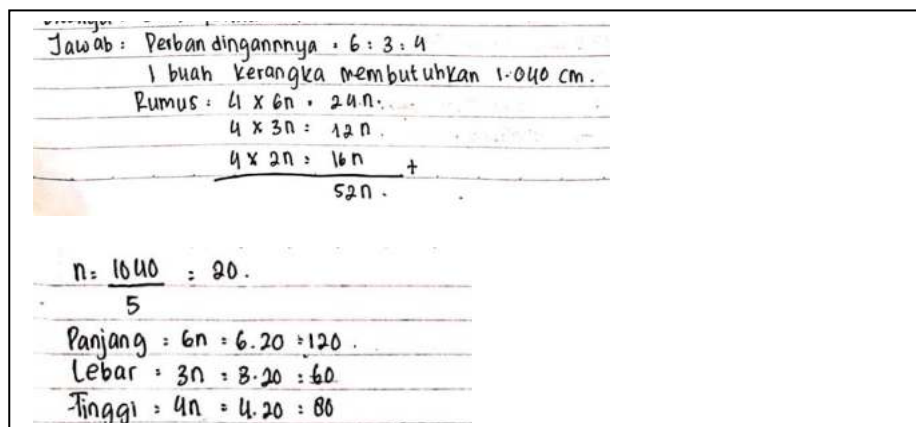 Jawab : Perbandingannnya : 6 : 3 : 4
1 buah kerangka membutuhkan 1.040 cm.
Rumus : 4 x 6n = 24n.
4 x 3n = 12n.
4 x 2n = 16n +
52n.
n = 1040 = 20.
5
Panjang = 6n = 6.20 = 120.
Lebar = 3n = 3.20 = 60
Tinggi = 4n = 4.20 = 80